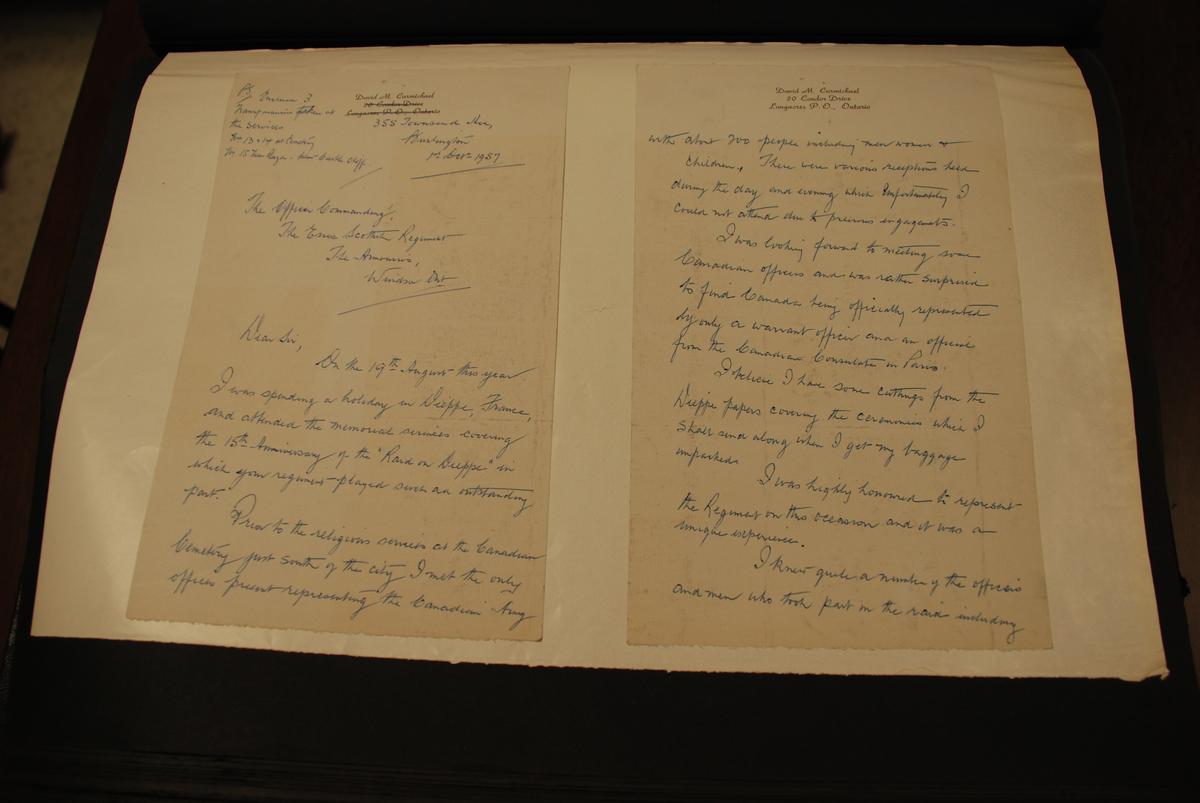 David M. Carmichael
20 Condor Drive
Longacres P. O., Ontario
355 Townsend Ave,
Burlington
1957
Transparencies taken at
the services
The Officer Commanding,
The Essex Scottish Regiment
The Armouries,
Windsor Ont
Dear Sir,
On the 19th August this year
I was spending a holiday in Dieppe, France,
and attended the memorial services covering
the 15th Anniversary of the "Raid on Dieppe" in
which your regiment played such an outstanding
part.
Prior to the religious services at the Canadian
Cemetery just south of the city I met the only
officer present representing the Canadian Army
David M. Carmichael
20 Condor Drive
Longacres P. O., Ontario
with about 200 people including men women &
children. There were various receptions held
during the day and evening which unfortunately I
could not attend due to previous engagements.
I was looking forward to meeting some
Canadian officers and was rather surprised
to find Canada being officially represented
by only a warrant officer and an official
from the Canadian Consulate in Paris.
I believe I have some cuttings from the
Dieppe papers covering the ceremonies which I
shall send along when I get my baggage
unpacked.
I was highly honoured to represent
the Regiment on this occasion and it was a
unique experience.
I knew quite a number of the officers
and men who took part in the raid including